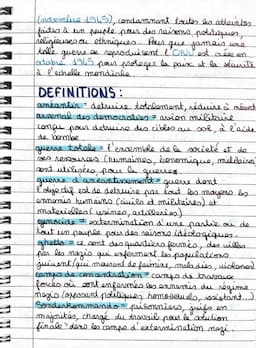 (novembre 1945), condamnant toutes les atteintes
faites à un peuple pour des raisons politiques,
religieuses ou ethniques. Pour que jamais une
telle guerre se reproduisent l'ONU est créée en
octobre 1945 pour protéger la paix et la sécurité
à l'échelle mondiale.
DEFINITIONS:
anéantir = détruire totalement, réduire à néant
arsenal des démocraties = avion militaire
conçu pour détruire des cibles au sol, à l'aide
de bombe
guerre totale = l'ensemble de la société et de
ses ressources (humaines, économique, militaire)
sont utilisées pour la guerre
guerre d'anéantissement = guerre dont
l'objectif est de détruire par tout les moyens les
ennemis humains (civils et militaires) et
matérielles (usines, artilleries)
génocide = extermination d'une partie ou de
tout un peuple pour des raisons idéologiques.
ghetto = ce sont des quartiers fermés, des villes
par les nazis qui enferment les populations
juives (qui meurent de faim, maladies, violences)
camps de concentration = camps de travaux
forcés où sont enfermés les ennemis du régime
nazis (opposant politiques, homosexuels, résistant...)
Sonderkommando = prisonniers, juifs en
majorités, chargé du travail pour la solution
finale dans les camps d'extermination nazi.